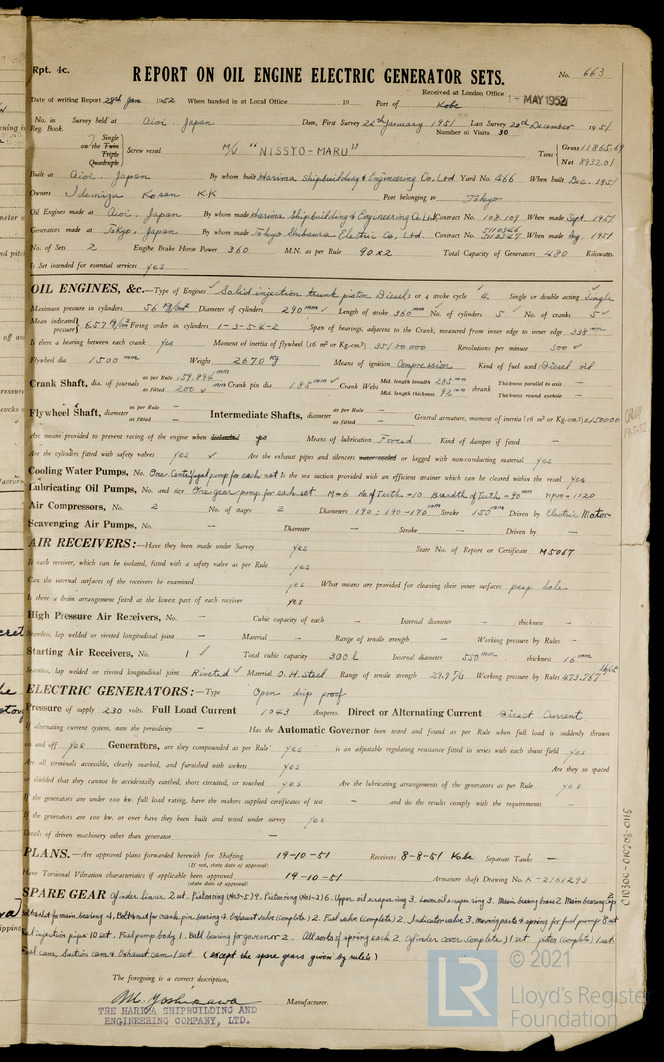 Rpt. 4c.
REPORT ON OIL ENGINE ELECTRIC GENERATOR SETS.
No. 663
Received at London Office
1 - MAY 1952
Date of writing Report 29th Jan 1952 When handed in at Local Office 19 Port of Kobe
No. in Reg. Book. Survey held at Aioi. Japan Date, First Survey 22nd January 1951 Last Survey 20th December 1951
Number of Visits 30
on the Single Twin Triple Quadruple Screw vessel M/V "NISSYO-MARU" Tons Gross 11865.69 Net 8932.01
Built at Aioi. Japan By whom built Harima Shipbuilding & Engineering Co. Ltd Yard No. 466 When built Dec. 1951
Owners Idemizu Kosan K.K Port belonging to Tokyo
Oil Engines made at Aioi, Japan By whom made Harima Shipbuilding & Engineering Co. Ltd Contract No. 108.109 When made Sept 1951
Generators made at Tokyo, Japan By whom made Tokyo Shibaura Electric Co, Ltd. Contract No. 5110346 5110347 When made Aug. 1951
No. of Sets 2 Engine Brake Horse Power 360 M.N. as per Rule 90x2 Total Capacity of Generators 480 Kilowatts.
Is Set intended for essential services yes
OIL ENGINES, &c.—Type of Engines Solid injection trunk piston Diesels or 4 stroke cycle 4 Single or double acting Single
Maximum pressure in cylinders 56 kg/cm² Diameter of cylinders 290 mm Length of stroke 360 mm No. of cylinders 5 No. of cranks 5
Mean indicated pressure 6.57 kg/cm² Firing order in cylinders 1-3-5-4-2 Span of bearings, adjacent to the Crank, measured from inner edge to inner edge 338 mm
Is there a bearing between each crank yes Moment of inertia of flywheel (16 m² or Kg-cm²) 35150000 Revolutions per minute 500
Flywheel dia 1500 mm Weight 2670 kg Means of ignition Compression Kind of fuel used Diesel oil
Crank Shaft, dia. of journals as per Rule 159.894 as fitted 200 mm Crank pin dia 185 mm Crank Webs Mid. length breadth 285 mm Mid. length thickness 92 mm shrunk Thickness parallel to axis — Thickness round eyehole —
Flywheel Shaft, diameter as per Rule — as fitted — Intermediate Shafts, diameter as per Rule — as fitted — General armature, moment of inertia (16 m² or Kg-cm²) 6150000
Are means provided to prevent racing of the engine when declutched yes Means of lubrication Forced Kind of damper if fitted —
Are the cylinders fitted with safety valves yes Are the exhaust pipes and silencers water cooled or lagged with non-conducting material yes
Cooling Water Pumps, No. One Centrifugal pump for each set Is the sea suction provided with an efficient strainer which can be cleared within the vessel yes
Lubricating Oil Pumps, No. and size One gear pump for each set M=6 No. of Teeth =10 Breadth of Teeth =90 mm rpm=1120
Air Compressors, No. 2 No. of stages 2 Diameters 190; 190-170 mm Stroke 150 mm Driven by Electric Motor
Scavenging Air Pumps, No. — Diameter — Stroke — Driven by —
AIR RECEIVERS:—Have they been made under Survey yes State No. of Report or Certificate M5067
Is each receiver, which can be isolated, fitted with a safety valve as per Rule yes
Can the internal surfaces of the receivers be examined yes What means are provided for cleaning their inner surfaces peep hole
Is there a drain arrangement fitted at the lowest part of each receiver yes
High Pressure Air Receivers, No. — Cubic capacity of each — Internal diameter — thickness —
Seamless, lap welded or riveted longitudinal joint — Material — Range of tensile strength — Working pressure by Rules —
Starting Air Receivers, No. 1 Total cubic capacity 300 L Internal diameter 550 mm thickness 16 mm
Seamless, lap welded or riveted longitudinal joint Riveted Material O.H. Steel Range of tensile strength 29.9 Working pressure by Rules 473.767
ELECTRIC GENERATORS:—Type Open drip proof
Pressure of supply 230 volts. Full Load Current 1043 Amperes. Direct or Alternating Current Direct Current
If alternating current system, state the periodicity — Has the Automatic Governor been tested and found as per Rule when full load is suddenly thrown
on and off yes Generators, are they compounded as per Rule yes is an adjustable regulating resistance fitted in series with each shunt field yes
Are all terminals accessible, clearly marked, and furnished with sockets yes Are they so spaced
or shielded that they cannot be accidentally earthed, short circuited, or touched yes Are the lubricating arrangements of the generators as per Rule yes
If the generators are under 100 kw. full load rating, have the makers supplied certificates of test — and do the results comply with the requirements —
If the generators are 100 kw. or over have they been built and tested under survey yes
Details of driven machinery other than generator —
PLANS.—Are approved plans forwarded herewith for Shafting 19-10-51 Receivers 8-8-51 Kobe Separate Tanks —
(If not, state date of approval)
Have Torsional Vibration characteristics if applicable been approved 19-10-51 Armature shaft Drawing No. K-2161293
(state date of approval)
SPARE GEAR Cylinder liner 2 set, Piston ring (No3-5) 9, Piston ring (No1-2) 6. Upper oil scraper ring 3, Lower oil scraper ring 3, Main bearing base 2 Main bearing Cap 2
bolts & nut for main bearing 4, Bolts & nut for crank pin bearing 4 Exhaust valve (complete) 2. Fuel valve (complete) 2. Indicator valve 3, Moving parts & spring for fuel pump 8 set
injection pipe 10 set, Fuel pump body 1, Ball bearing for governor 2. All sorts of spring each 2, Cylinder cover (complete) 1 set piston (complete) 1 set
cam, Suction cam & Exhaust cam 1 set (except the spare gears given by rules)
The foregoing is a correct description,
M. Yoshikawa Manufacturer.
THE HARIMA SHIPBUILDING AND
ENGINEERING COMPANY, LTD.
C10300-010308-0115
LR
© 2021
Lloyd's Register
Foundation